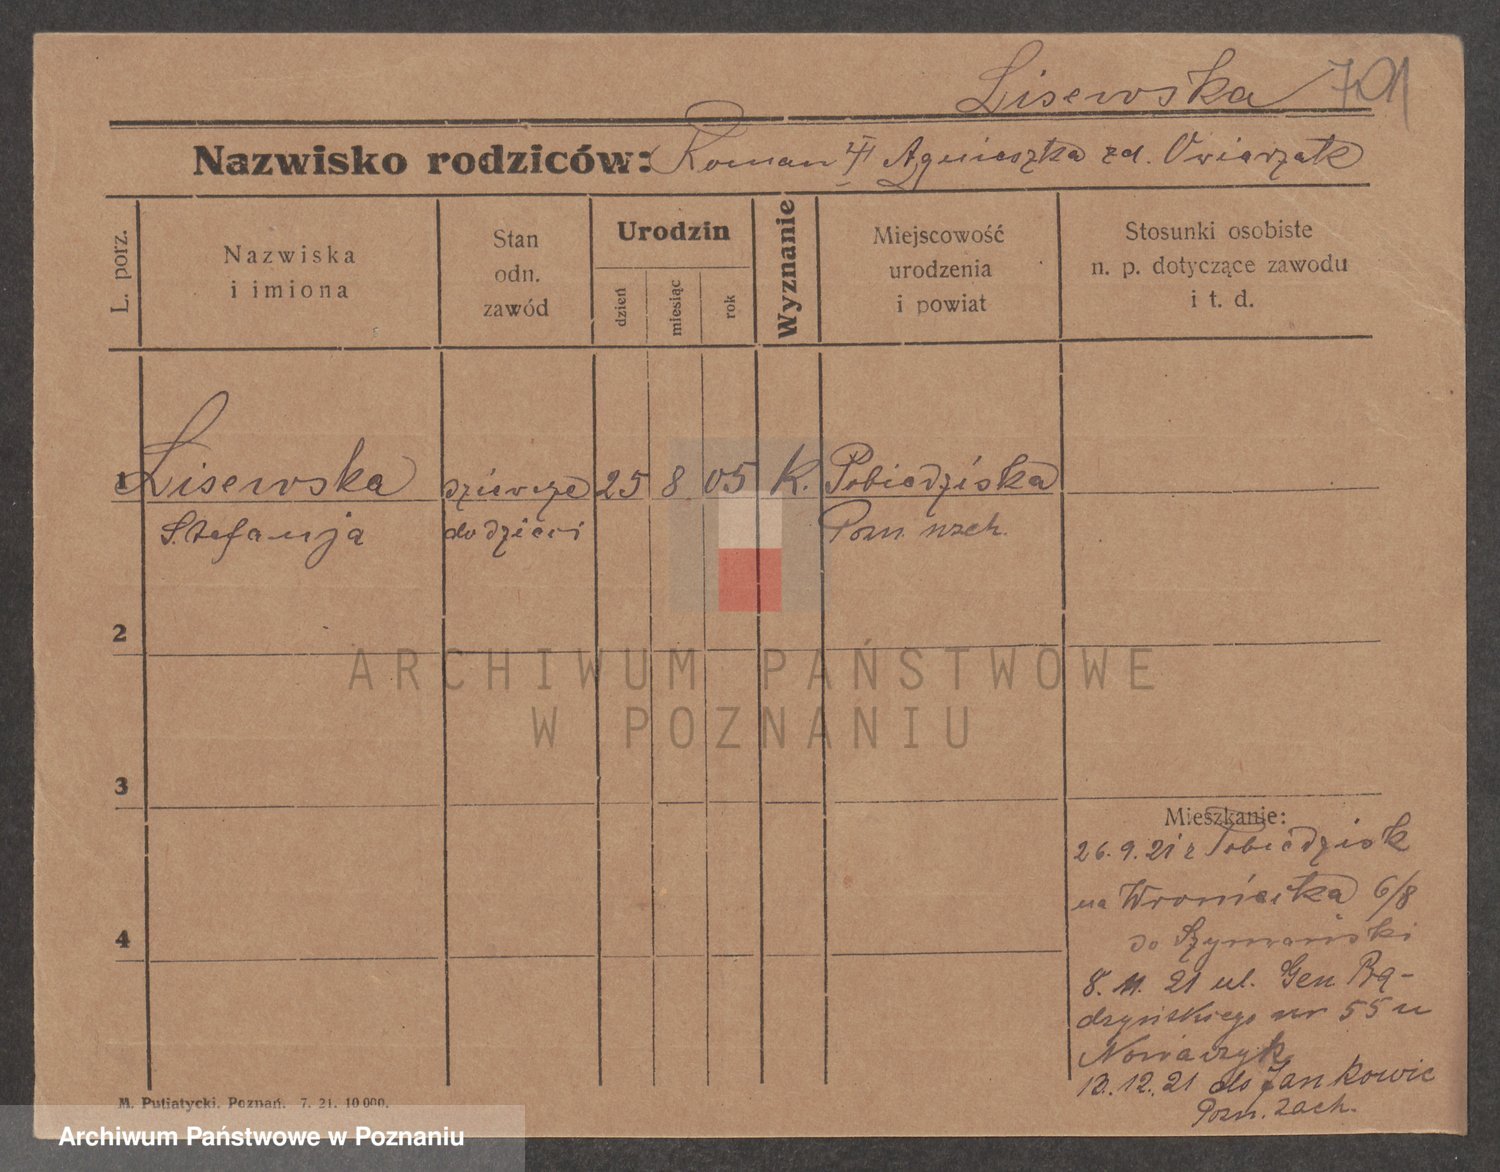 Lisewska 701
Nazwisko rodziców: Roman Agnieszka zd. Owiarzak
L. porz.
Nazwiska
i imiona
Stan
odn.
zawód
Urodzin
dzień
miesiąc
rok
Wyznanie
Miejscowość
urodzenia
i powiat
Stosunki osobiste
n. p. dotyczące zawodu
i t. d.
1 Lisewska dziewczę 25 8 05 K. Pobiedziska
Stefanja do dzieci Pozn. wsch.
2
3
4
Mieszkanie:
26.9.21 z Pobiedzisk
na Wroniecka 6/8
do Szymański
8.11.21 ul. Gen Prą-
dzyńskiego nr 55 u
Nowaczyk
13.12.21 do Jankowic
Pozn. Zach.
M. Putiatycki, Poznań. 7. 21. 10 000.
ARCHIWUM PAŃSTWOWE
W POZNANIU
Archiwum Państwowe w Poznaniu